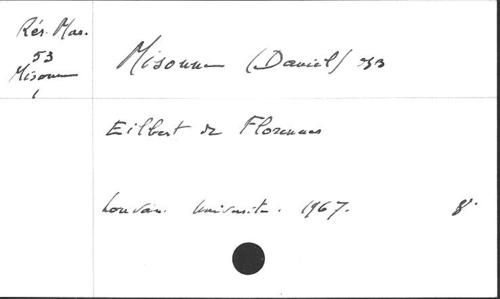 Rés. Mas.
53
Misonne
1
Misonne (Daniel) OSB
Eilbert de Florennes
Louvain. Université. 1967. 8°.